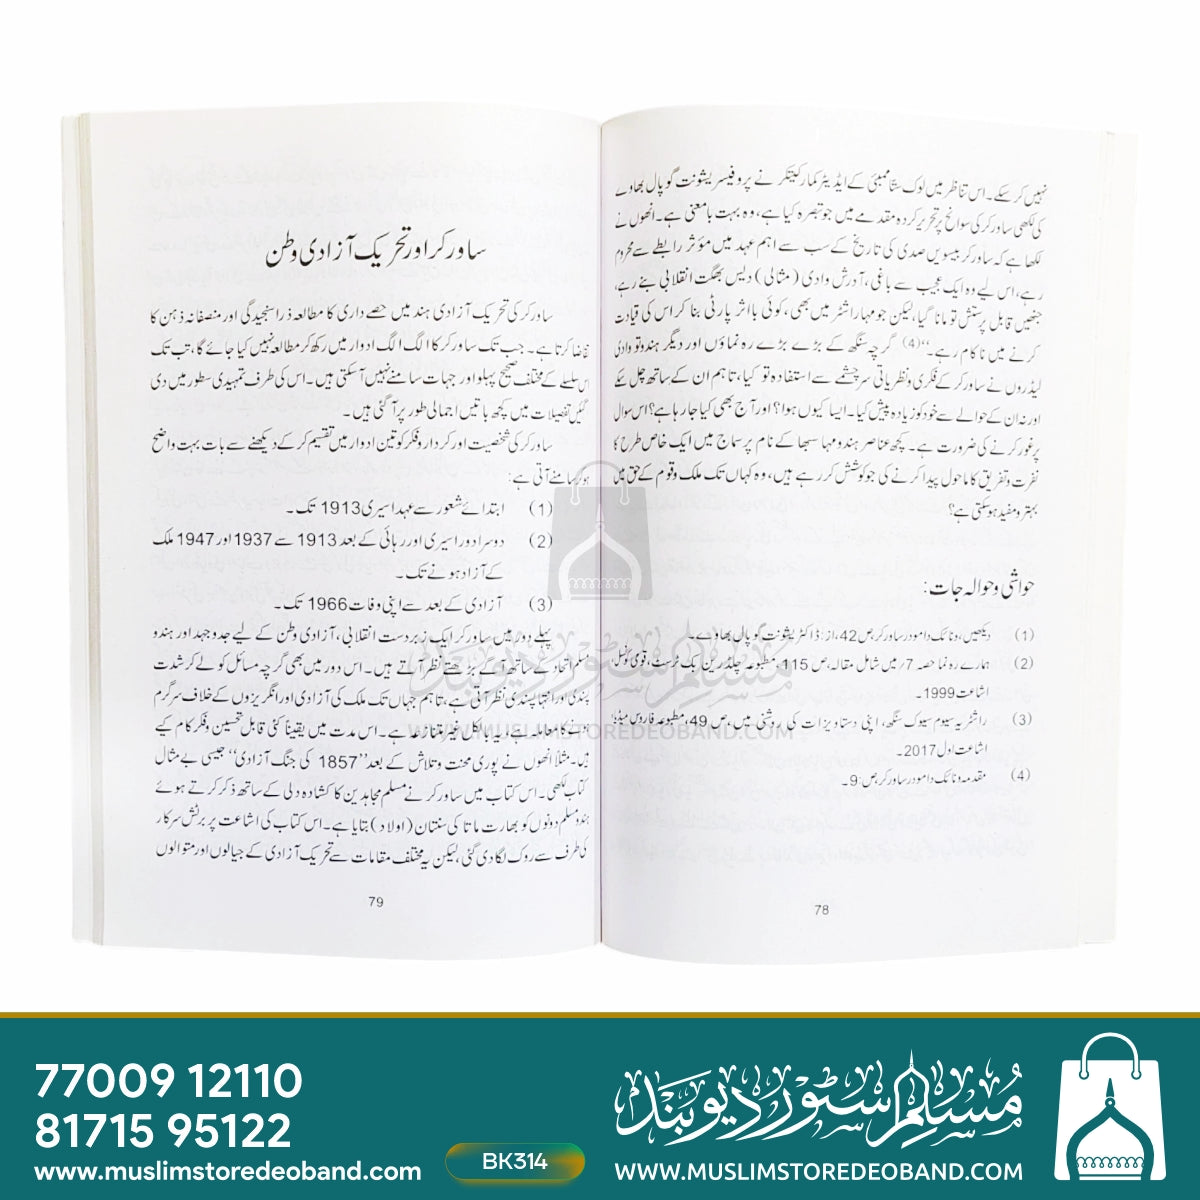 نہیں کر سکے۔ اس تناظر میں لوک ستا ممبئی کے ایڈیٹر کمار کیتکر نے پروفیسر یشونت گوپال بھاوے
کی لکھی ساورکر کی سوانح پر تحریر کردہ مقدمے میں جو تبصرہ کیا ہے، وہ بہت بامعنی ہے۔ انھوں نے
لکھا ہے کہ ساورکر بیسویں صدی کی تاریخ کے سب سے اہم عہد میں مؤثر رابطے سے محروم
رہے، اس لیے وہ ایک عجیب سے باغی، آدرش وادی (مثالی) دیس بھگت انقلابی بنے رہے،
جنھیں قابل پرستش تو مانا گیا، لیکن جو مہاراشٹر میں بھی، کوئی بااثر پارٹی بنا کر اس کی قیادت
کرنے میں ناکام رہے۔‘‘(4) گرچہ سنگھ کے بڑے بڑے رہ نماؤں اور دیگر ہندوتو وادی
لیڈروں نے ساورکر کے فکری و نظریاتی سرچشمے سے استفادہ تو کیا، تاہم ان کے ساتھ چل سکے
اور نہ ان کے حوالے سے خود کو زیادہ پیش کیا۔ ایسا کیوں ہوا؟ اور آج بھی کیا جا رہا ہے؟ اس سوال
پر غور کرنے کی ضرورت ہے۔ کچھ عناصر ہندو مہا سبھا کے نام پر سماج میں ایک خاص طرح کا
نفرت و تفریق کا ماحول پیدا کرنے کی جو کوشش کر رہے ہیں، وہ کہاں تک ملک و قوم کے حق میں
بہتر و مفید ہو سکتی ہے؟
حواشی و حوالہ جات:
(1) دیکھیں، ونائک دامودر ساورکر، ص 42، از: ڈاکٹر یشونت گوپال بھاوے۔
(2) ہمارے رہنما حصہ 7 میں شامل مقالہ، ص 115، مطبوعہ چلڈرین بک ٹرسٹ، قومی کونسل
اشاعت 1999۔
(3) راشٹریہ سیوم سیوک سنگھ، اپنی دستاویزات کی روشنی میں، ص 49، مطبوعہ فاروس میڈیا
اشاعت اول 2017۔
(4) مقدمہ ونائک دامودر ساورکر ص: 9۔
78
ساورکر اور تحریک آزادی وطن
ساورکر کی تحریک آزادی ہند میں حصے داری کا مطالعہ ذرا سنجیدگی اور منصفانہ ذہن کا
تقاضا کرتا ہے۔ جب تک ساورکر کا الگ الگ ادوار میں رکھ کر مطالعہ نہیں کیا جائے گا، تب تک
اس سلسلے کے مختلف صحیح پہلو اور جہات سامنے نہیں آ سکتی ہیں۔ اس کی طرف تمہیدی سطور میں دی
گئیں تفصیلات میں کچھ باتیں اجمالی طور پر آ گئی ہیں۔
ساورکر کی شخصیت اور کردار و فکر کو تین ادوار میں تقسیم کر کے دیکھنے سے بات بہت واضح
ہو کر سامنے آتی ہے:
(1) ابتدائے شعور سے عہد اسیری 1913 تک۔
(2) دوسرا دور اسیری اور رہائی کے بعد 1913 سے 1937 اور 1947 ملک
کے آزاد ہونے تک۔
(3) آزادی کے بعد سے اپنی وفات 1966 تک۔
پہلے دور میں ساورکر ایک زبردست انقلابی، آزادی وطن کے لیے جدوجہد اور ہندو
مسلم اتحاد کے ساتھ آگے بڑھتے نظر آتے ہیں۔ اس دور میں بھی گرچہ مسائل کو لے کر شدت
پسندی اور انتہا پسندی نظر آتی ہے، تاہم جہاں تک ملک کی آزادی اور انگریزوں کے خلاف سرگرم
ہونے کا معاملہ ہے یہ بالکل غیر متنازعہ ہے۔ اس مدت میں یقیناً کئی قابل تحسین و فکر کام کیے
ہیں۔ مثلاً انھوں نے پوری محنت و تلاش کے بعد ’’1857 کی جنگ آزادی‘‘ جیسی بے مثال
کتاب لکھی۔ اس کتاب میں ساورکر نے مسلم مجاہدین کا کشادہ دلی کے ساتھ ذکر کرتے ہوئے
ہندو مسلم دونوں کو بھارت ماتا کی سنتان (اولاد) بتایا ہے۔ اس کتاب کی اشاعت پر برٹش سرکار
کی طرف سے روک لگا دی گئی، لیکن یہ مختلف مقامات سے تحریک آزادی کے جیالوں اور متوالوں
79
مسلم سٹور دیوبند
WWW.MUSLIMSTOREDEOBAND.COM
77009 12110
81715 95122
www.muslimstoredeoband.com
BK314
مسلم سٹور دیوبند
WWW.MUSLIMSTOREDEOBAND.COM